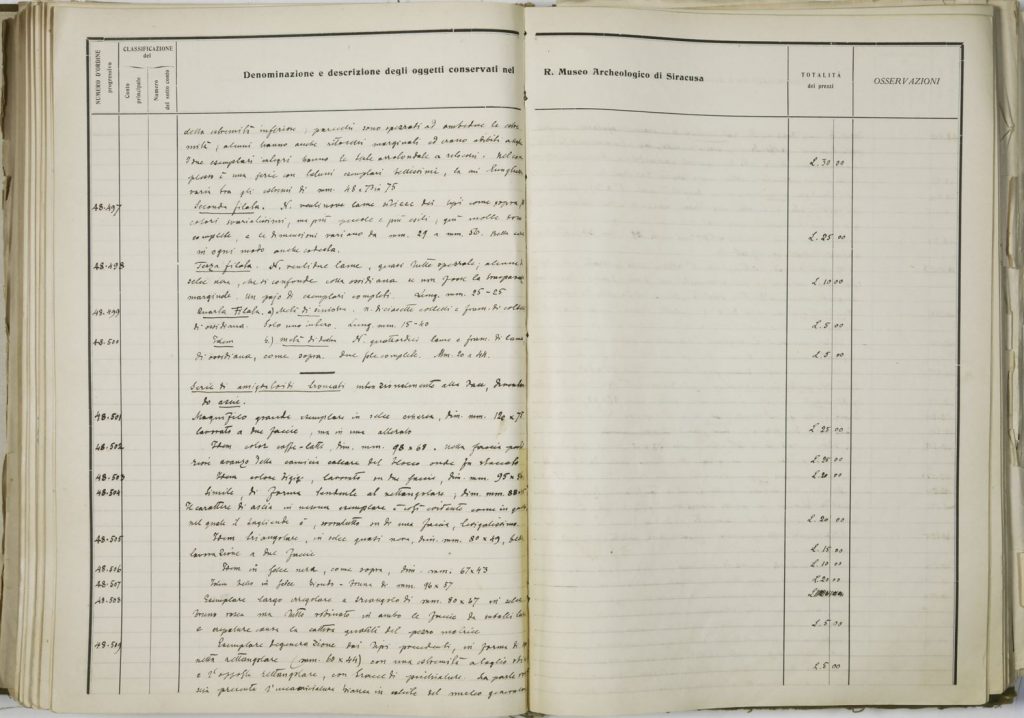 NUMERO D'ORDINE progressivo
CLASSIFICAZIONE del
Conto principale
Numero del sotto conto
Denominazione e descrizione degli oggetti conservati nel R. Museo Archeologico di Siracusa
TOTALITÀ dei prezzi
OSSERVAZIONI
della estremità inferiore, parecchi sono spezzati ad ambedue le estre
mità; alcuni hanno anche ritocchi marginali ed erano
due esemplari integri hanno le
plesso è una serie con taluni esemplari bellissimi, la cui lunghezza
varia tra gli estremi di mm. 48 75 L. 30 00
48.497 Seconda filata. N. ventinove lame silicee dei tipi come sopra,
colori svariatissimi, ma più piccole e più esili, già molte
complete, e le dimensioni variano da mm. 29 a mm. L. 25 00
in ogni modo anche codesta.
48.498 Terza filata. N. ventidue lame, quasi tutte spezzate, alcune
selce nera, che si confonde colla ossidiana se non fosse la
marginale. Un pajo di esemplari completi. Lung. mm. 25-25 L. 10 00
48.499 Quarta Filata. a) Metà di sinistra. n. diciasette coltelli e fram. di
di ossidiana. Solo uno intero. Lung. mm. 15-40 L. 5 00
48.500 Idem b) metà di destra N. quattordici lame e fram. di lame
di ossidiana, come sopra. due sole complete. Mm. 20 e 44. L. 5 00
Serie di amigdaloidi troncati intenzionalmente alla base,
do ascie.
48.501 Magnifico grande esemplare in selce cinerea, dim. mm. 120 x 75
lavorato a due faccie, ma in una alterato L. 25 00
48.502 Idem color caffe-latte, dim. mm. 98 x 68. nella faccia
avanzo della camicia calcare del blocco onde fu staccato L. 25 00
48.503 Idem colore lavorato su due faccie, dim. mm. 95 x L. 20 00
48.504 Simile, di forma tendente al rettangolare; dim. mm. 88
Il carattere di ascia in nessun esemplare è così evidente come in
nel quale il tagliente è, sopratutto su di una faccia, levigatissimo. L. 20 00
48.505 Idem triangolare, in selce quasi nera, dim. mm. 80 x 49,
lavorazione a due faccie L. 15 00
48.506 Idem in selce nera, come sopra, dim. mm. 67 x 43 L. 10 00
48.507 Idem in selce bionda-bruna di mm. 96 x 57 L. 20 00
48.508 Esemplare largo irregolare e triangolo di mm. 80 x 67 in selce
bruno rosea ma tutto rovinato in ambo le faccie da
e crepature causa la cattiva qualità del pezzo matrice L. 5 00
48.509 Esemplare degenerazione dai tipi precedenti, in forma di
netta rettangolare (mm. 60 x 44) con una estremità a taglio
e l'opposta rettangolare, con tracce di picchiature. La parte
sia presenta l'incamiciatura bianca in calcite del nucleo L. 5 00